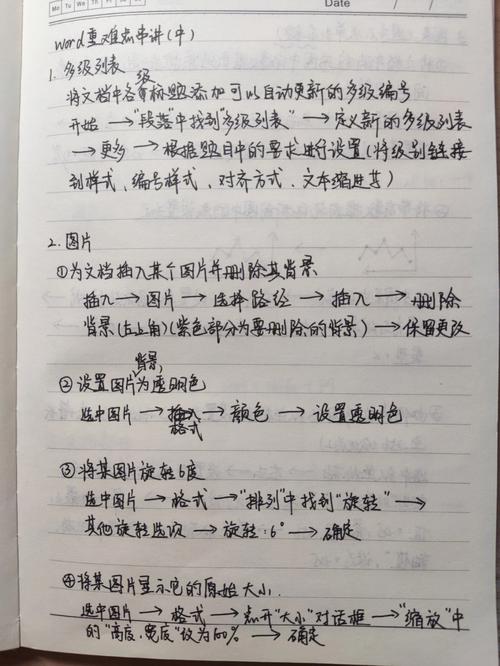 Mo Tu We Th Fr Sa Su
Date / /
word重难点串讲(中)
1. 多级列表
将文档中各级标题添加可以自动更新的多级编号
开始 → "段落"中找到"多级列表" → 定义新的多级列表
→ 更多 → 根据题目中的要求进行设置(将级别链接
到样式、编号样式、对齐方式、文本缩进等)
2. 图片
①为文档插入某个图片并删除其背景
插入 → 图片 → 选择路径 → 插入 → 删除
背景(左上角)(紫色部分为要删除的背景) → 保留更改
②设置图片背景为透明色
选中图片 → 格式 → 颜色 → 设置透明色
③将某图片旋转6度
选中图片 → 格式 → "排列"中找到"旋转" →
其他旋转选项 → 旋转:6° → 确定
④将某图片显示它的原始大小.
选中图片 → 格式 → 点开"大小"对话框 → "缩放"中
的"高度、宽度"改为100% → 确定